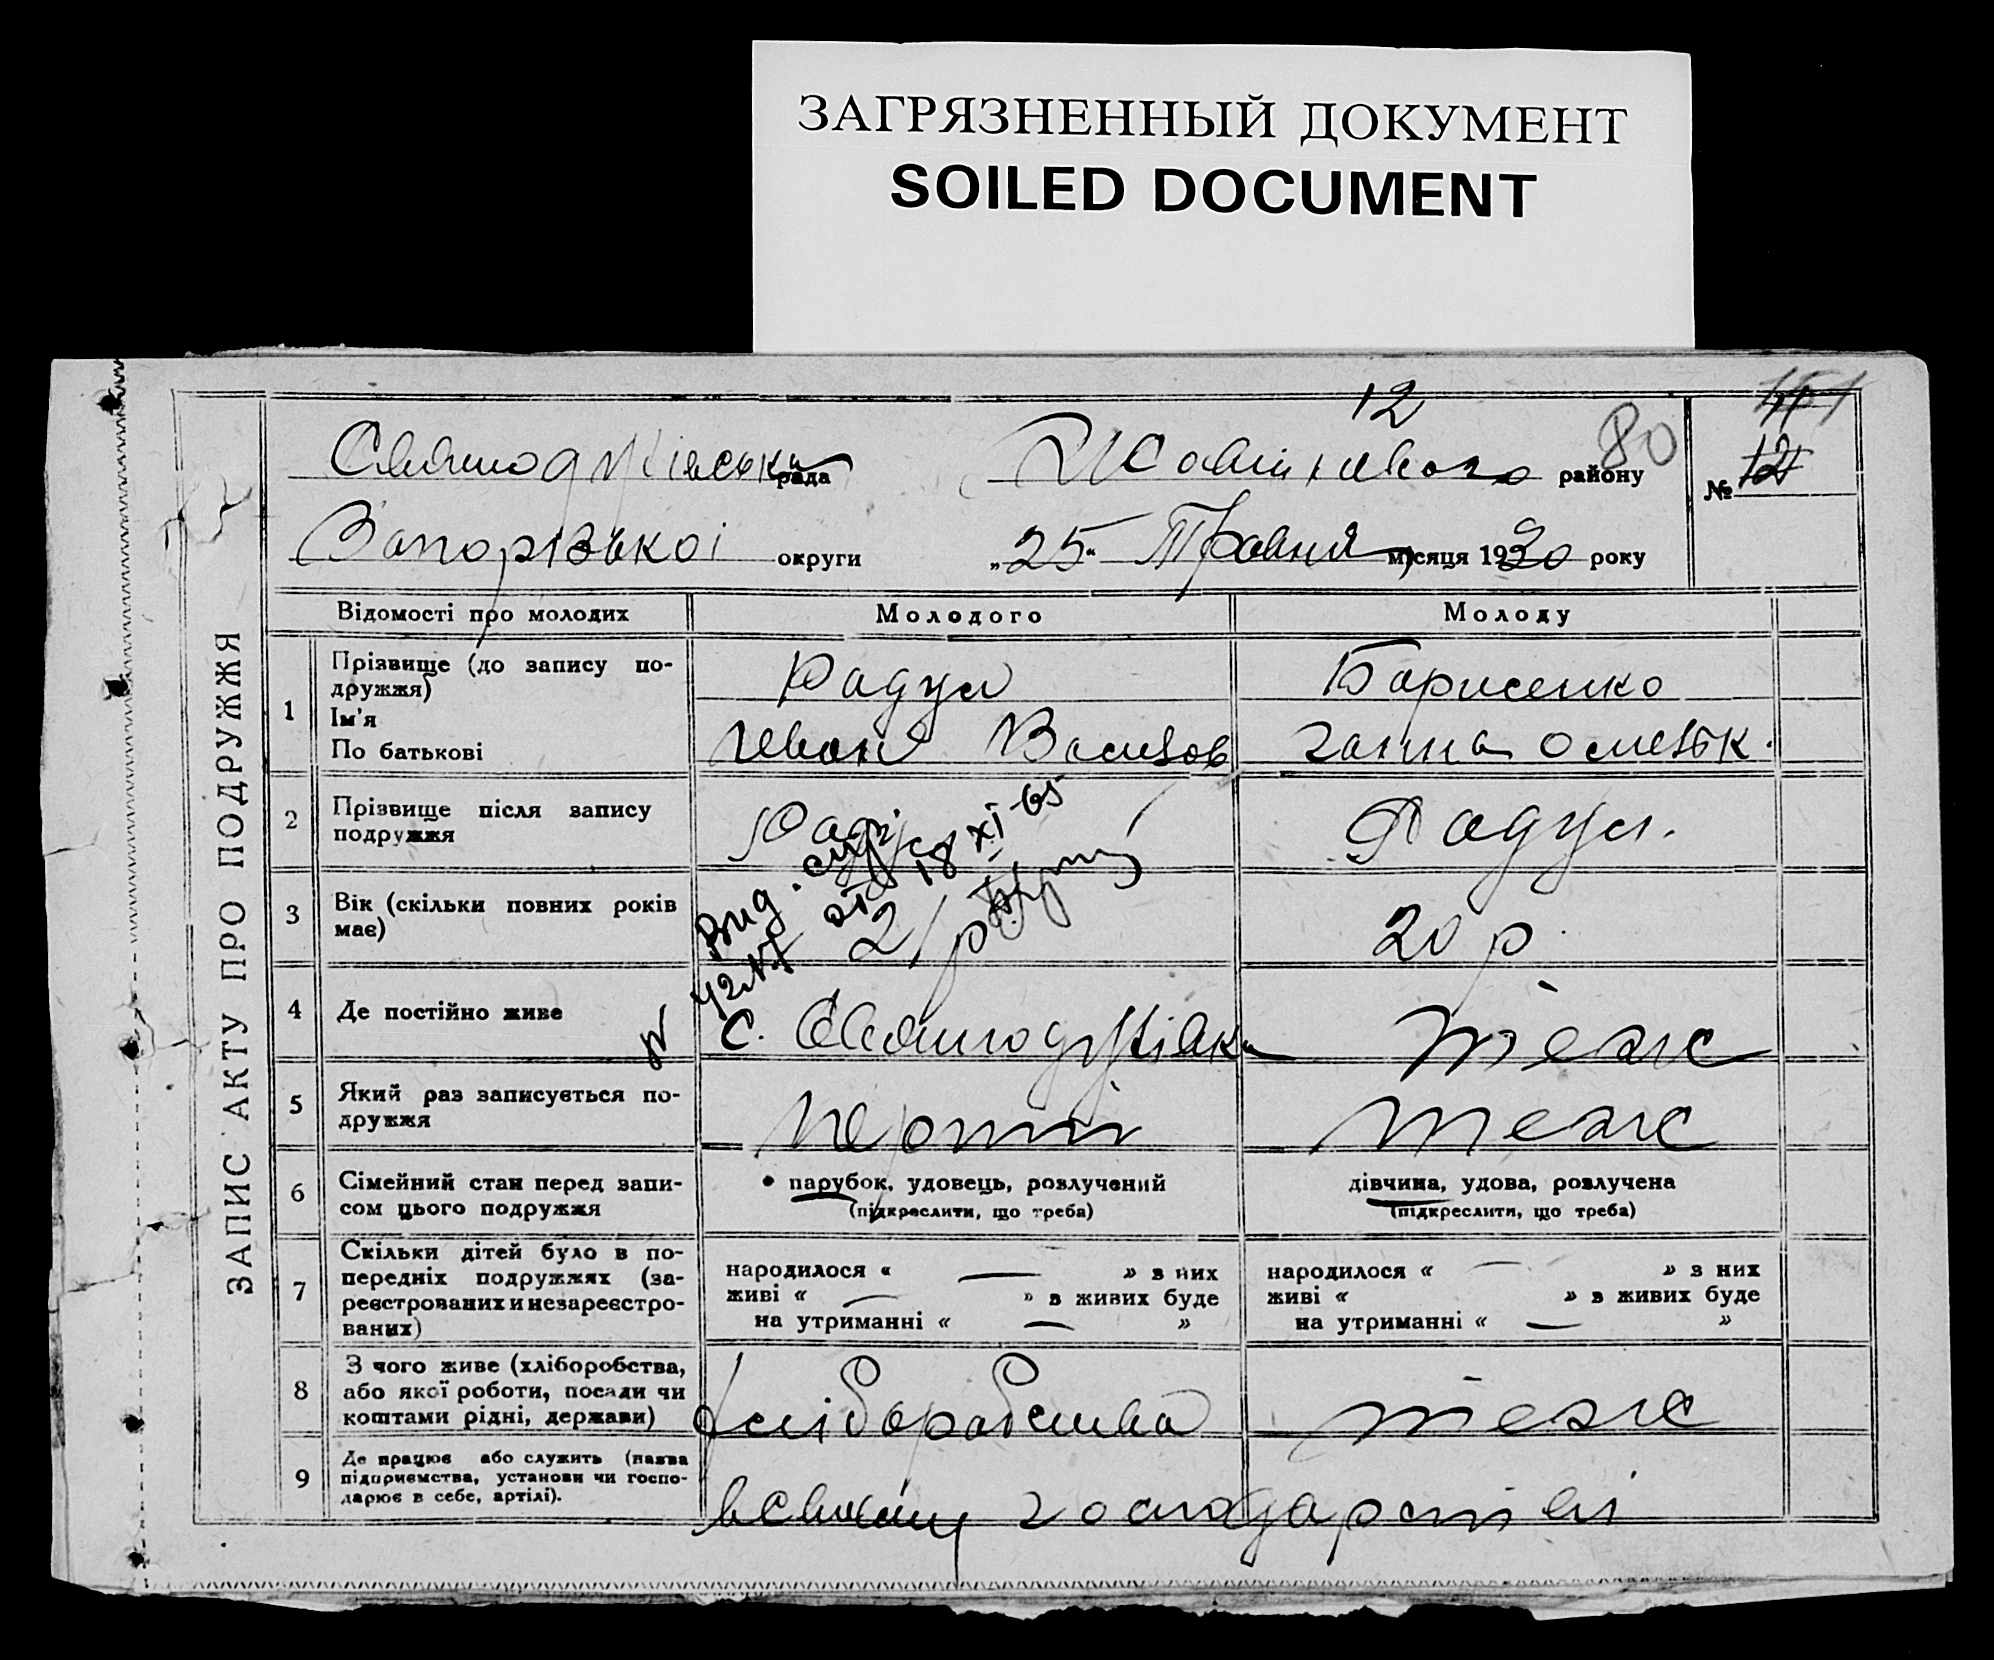 ЗАГРЯЗНЕННЫЙ ДОКУМЕНТ
SOILED DOCUMENT
12
80
Святодухівська рада района району
№ 12
Запорізької округи „25“ Травня місяця 1930 року
ЗАПИС АКТУ ПРО ПОДРУЖЖЯ
Відомості про молодих Молодого Молоду
1 Прізвище (до запису по-
дружжя) Радул Борисенко
Ім'я
По батькові Іван Васильов Ганна Омельк.
2 Прізвище після запису
подружжя Радул Радул.
3 Вік (скільки повних років
має) 21 р. 20 р.
от 18 XI-65
4 Де постійно живе с. Святодухівка теж
5 Який раз записується по-
дружжя перший теж
6 Сімейний стан перед запи-
сом цього подружжя
• парубок, удовець, розлучений
(підкреслити, що треба)
дівчина, удова, розлучена
(підкреслити, що треба)
7 Скільки дітей було в по-
передніх подружжях (за-
реєстрованих и незареєстро-
ваних)
народилося « — » з них
живі « — » в живих буде
на утриманні « — »
народилося « — » з них
живі « » в живих буде
на утриманні « — »
8 З чого живе (хліборобства,
або якої роботи, посади чи
коштами рідні, держави) хліборобства теж
9 Де працює або служить (назва
підприємства, установи чи госпо-
дарює в себе, артілі).
в своїому господарстві